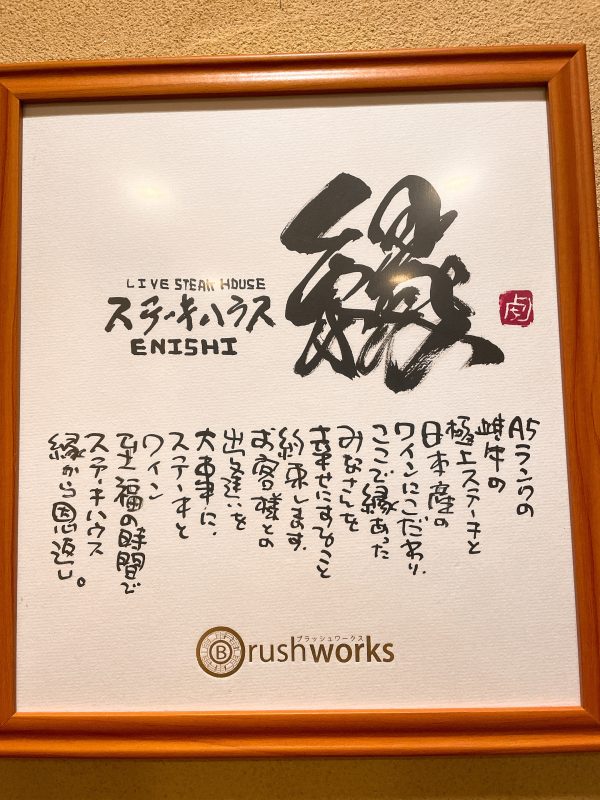 縁
LIVE STEAK HOUSE
ステーキハウス
ENISHI
A5ランクの
雌牛の
極上ステーキと
日本産の
ワインにこだわり、
ここで縁あった
みなさんを
幸せにすること
約束します。
お客様との
出逢いを
大事に、
ステーキと
ワイン
で至福の時間で
ステーキハウス
縁から恩返し。
ブラッシュワークス
Brushworks